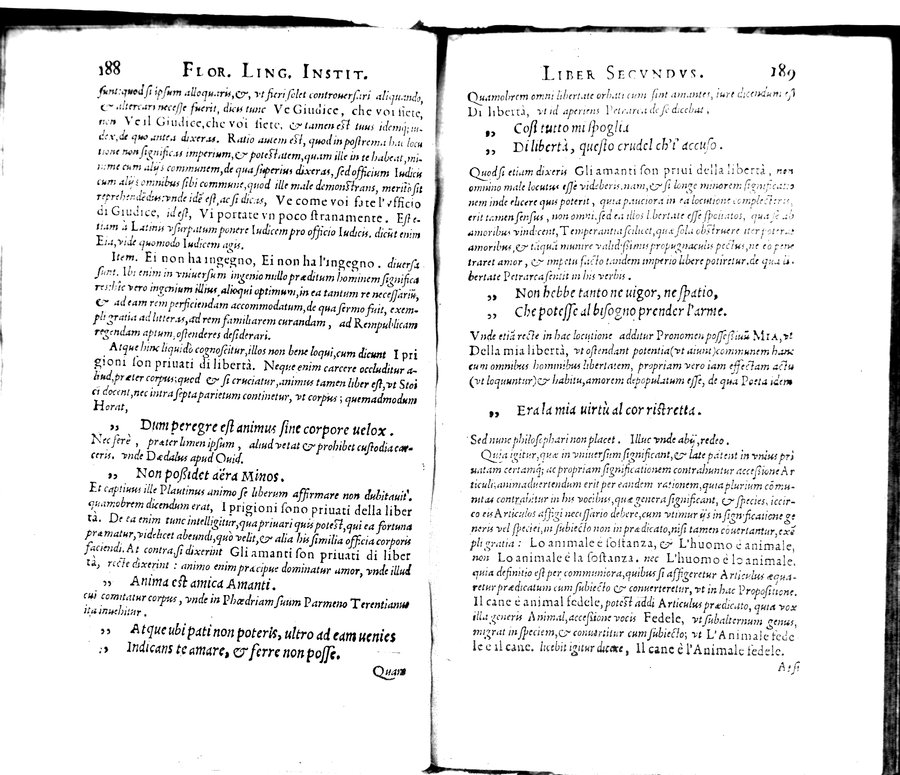 188 FLOR. LING. INSTIT.
sunt: quod si ipsum alloquaris, &, vt fieri solet controversari aliquando,
& altercari necesse fuerit, dicis tunc Ve Giudice, che voi siete,
non Ve il Giudice, che voi siete, & tamen est tuus idemq; iu-
dex, de quo antea dixeras. Ratio autem est, quod in postrema hac locu
tione non significas imperium, & potestatem, quam ille in te habeat, mi-
nime cum alijs communem, de qua superius dixeras, sed officium Iudicis
cum alijs omnibus sibi commune, quod ille male demonstrans, merito sit
reprehendēdus: vnde idē est, ac si dicas, Ve come voi fate l'vfficio
di Giudice, id est, Vi portate vn poco stranamente. Est e-
tiam à Latinis vsurpatum ponere Iudicem pro officio Iudicis. dicūt enim
Eia, vide quomodo Iudicem agis.
Item. Ei non ha ingegno, Ei non ha l'ingegno. diversa
sunt. Ibi enim in vniversum ingenio nullo præditum hominem significa
res: hic vero ingenium illius, alioqui optimum, in ea tantum re necessariū,
& ad eam rem perficiendam accommodatum, de qua sermo fuit, exem-
pli gratia ad litteras, ad rem familiarem curandam, ad Rempublicam
regendam aptum, ostenderes desiderari.
Atque hinc liquidò cognoscitur, illos non bene loqui, cum dicunt I pri
gioni son priuati di libertà. Neque enim carcere occluditur a-
liud, præter corpus: quod & si cruciatur, animus tamen liber est, vt Stoi
ci docent, nec intra septa parietum continetur, vt corpus; quemadmodum
Horat,
„ Dum peregre est animus sine corpore uelox.
Nec ferè, præter limen ipsum, aliud vetat & prohibet custodia car-
ceris. vnde Dædalus apud Ouid.
„ Non possidet aëra Minos.
Et captiuus ille Plautinus animo se liberum affirmare non dubitauit.
quamobrem dicendum erat, I prigioni sono priuati della liber
tà. De ea enim tunc intelligitur, qua priuari quis potest, qui ea fortuna
præmatur, videlicet abeundi, quò velit, & alia his similia officia corporis
faciendi. At contra, si dixerint Gli amanti son priuati di liber
tà, recte dixerint: animo enim præcipue dominatur amor, vnde illud
„ Anima est amica Amanti.
cui comitatur corpus, vnde in Phædriam suum Parmeno Terentianus
ita inuehitur.
„ Atque ubi pati non poteris, ultro ad eam uenies
„ Indicans te amare, & ferre non posse.
Quam
LIBER SECVNDVS. 189
Quamobrem omni libertate orbati cum sint amantes, iure dicendum est
Di libertà, vt id aperiens Petrarca de se dicebat.
„ Così tutto mi spoglia
„ Di libertà, questo crudel ch'i' accuso.
Quod si etiam dixeris Gli amanti son priui della libertà, non
omnino male locutus esse videberis, nam, & si longe minorem significatio
nem inde elicere quis poterit, quia pauciora in ea locutione complecteris,
erit tamen sensus, non omni, sed ea illos libertate esse spoliatos, qua se ab
amoribus vindicent, Temperantia scilicet, quæ sola obstruere iter poterat
amoribus, & tāquā munire validissimis propugnaculis pectus, ne eo pene
traret amor, & impetu facto tandem imperio libere potiretur. de qua li-
bertate Petrarca sentit in his verbis.
„ Non hebbe tanto ne uigor, ne spatio,
„ Che potesse al bisogno prender l'arme.
Vnde etiā recte in hac locutione additur Pronomen possessiuū MIA, vt
Della mia libertà, vt ostendant potentia (vt aiunt) communem hanc
cum omnibus hominibus libertatem, propriam vero iam effectam actu
(vt loquuntur) & habitu, amorem depopulatum esse, de qua Poeta idem
„ Era la mia virtù al cor ristretta.
Sed nunc philosophari non placet. Illuc vnde abij, redeo.
Quia igitur, quæ in vniversum significant, & late patent in vnius pri
uatam certamq; ac propriam significationem contrahuntur accessione Ar
ticuli, animadvertendum erit per eandem rationem, quia plurium commu-
nitas contrahitur in his vocibus, quæ genera significant, & species, iccir-
co eis Articulos affigi necessario debere, cum vtimur ijs in significatione ge
neris vel speciei, in subiecto non in prædicato, nisi tamen covertantur, exē
pli gratia: Lo animale è sostanza, & L'huomo è animale,
non Lo animale è la sostanza. nec L'huomo è lo animale.
quia definitio est per communiora, quibus si affigeretur Articulus æqua-
retur prædicatum cum subiecto & converteretur, vt in hac Propositione.
Il cane è animal fedele, potest addi Articulus prædicato, quia vox
illa generis Animal, accessione vocis Fedele, vt subalternum genus,
migrat in speciem, & convertitur cum subiecto; vt L'Animale fede
le è il cane. licebit igitur dicere, Il cane è l'Animale fedele.
At si